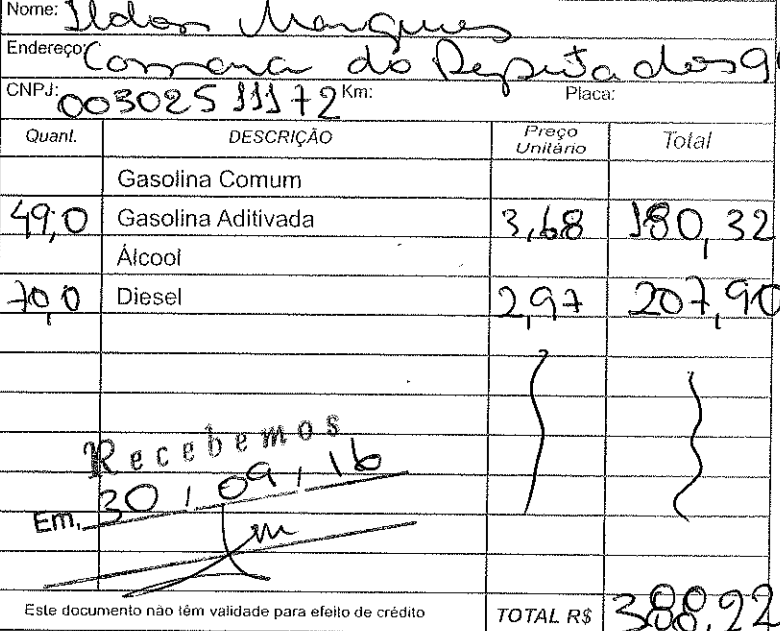 Nome: Ildon Marques
Endereço: Camara do Deputados 9
CNPJ: 00302511172 Km: Placa:
Quant. DESCRIÇÃO Preço Unitário Total
Gasolina Comum
49,0 Gasolina Aditivada 3,68 180,32
Álcool
70,0 Diesel 2,97 207,90
Recebemos
Em, 30 / 09 / 16
Este documento não têm validade para efeito de crédito TOTAL R$ 388,22